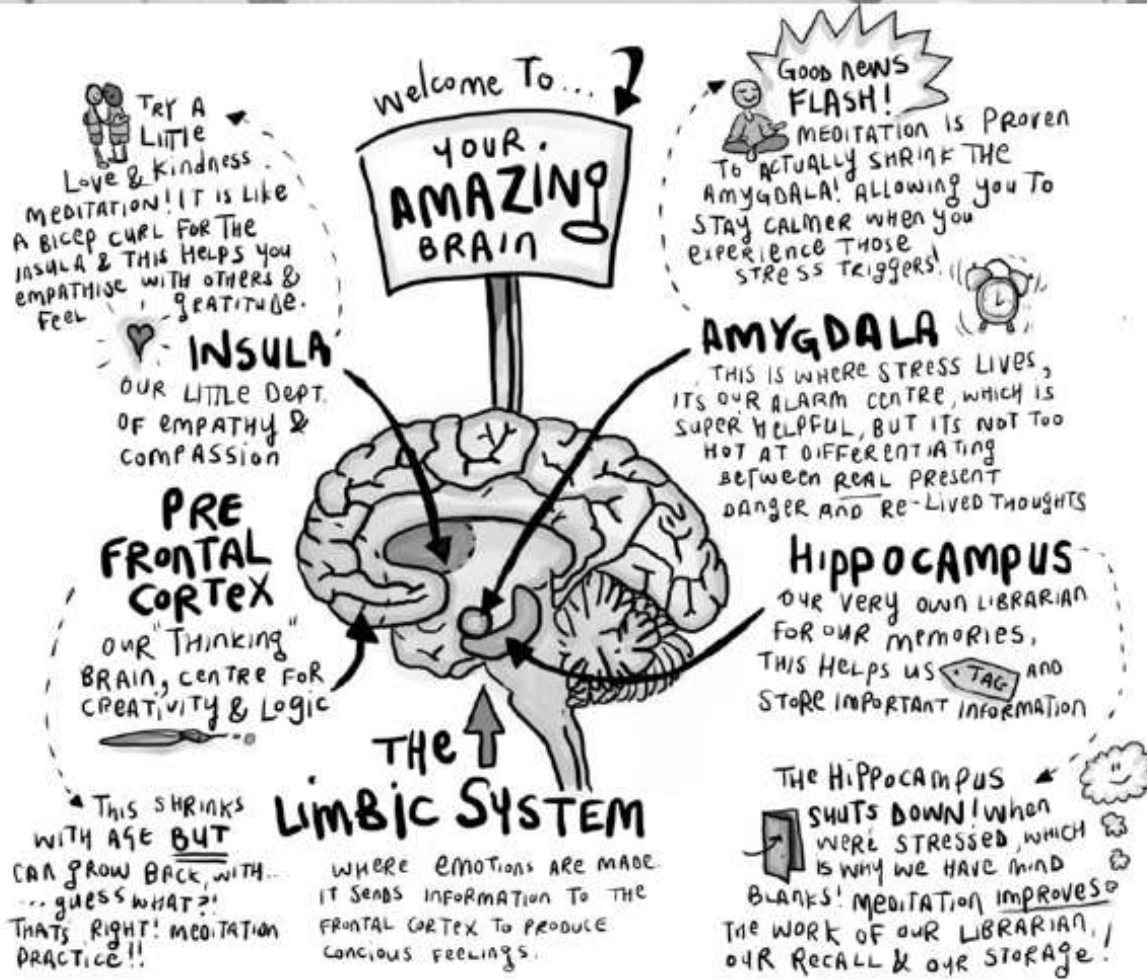 welcome To...
YOUR.
AMAZING
BRAIN
TRY A
LITTLE
Love & Kindness.
MEDITATION! IT IS LIKE
A BICEP CURL FOR THE
INSULA & THIS HELPS YOU
EMPATHISE WITH OTHERS &
FEEL GRATITUDE.
INSULA
OUR LITTLE DEPT.
OF EMPATHY &
COMPASSION
PRE
FRONTAL
CORTEX
OUR "THINKING"
BRAIN, CENTRE FOR
CREATIVITY & LOGIC
THIS SHRINKS
WITH AGE BUT
CAN GROW BACK, WITH...
... guess WHAT?!
THATS RIGHT! MEDITATION
PRACTICE!!
THE
LIMBIC SYSTEM
WHERE EMOTIONS ARE MADE.
IT SENDS INFORMATION TO THE
FRONTAL CORTEX TO PRODUCE
CONCIOUS FEELINGS.
GOOD NEWS
FLASH!
MEDITATION IS PROVEN
TO ACTUALLY SHRINK THE
AMYGDALA! ALLOWING YOU TO
STAY CALMER WHEN YOU
EXPERIENCE THOSE
STRESS TRIGGERS!
AMYGDALA
THIS IS WHERE STRESS LIVES,
ITS OUR ALARM CENTRE, WHICH IS
SUPER HELPFUL, BUT ITS NOT TOO
HOT AT DIFFERENTIATING
BETWEEN REAL PRESENT
DANGER AND RE-LIVED THOUGHTS
HIPPOCAMPUS
OUR VERY OWN LIBRARIAN
FOR OUR MEMORIES,
THIS HELPS US TAG AND
STORE IMPORTANT INFORMATION
THE HIPPOCAMPUS
SHUTS DOWN! WHEN
WERE STRESSED, WHICH
IS WHY WE HAVE MIND
BLANKS! MEDITATION IMPROVES
THE WORK OF OUR LIBRARIAN,
OUR RECALL & OUR STORAGE!